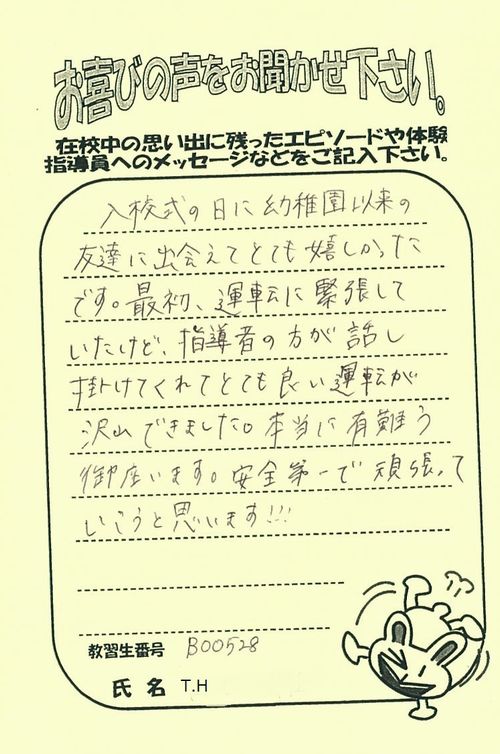 お喜びの声をお聞かせ下さい。
在校中の思い出に残ったエピソードや体験
指導員へのメッセージなどをご記入下さい。
入校式の日に幼稚園以来の
友達に出会えてとても嬉しかった
です。最初、運転に緊張して
いたけど、指導者の方が話し
掛けてくれてとても良い運転が
沢山できました。本当に有難う
御座います。安全第一で頑張って
いこうと思います!!!
教習生番号 B00528
氏名 T.H